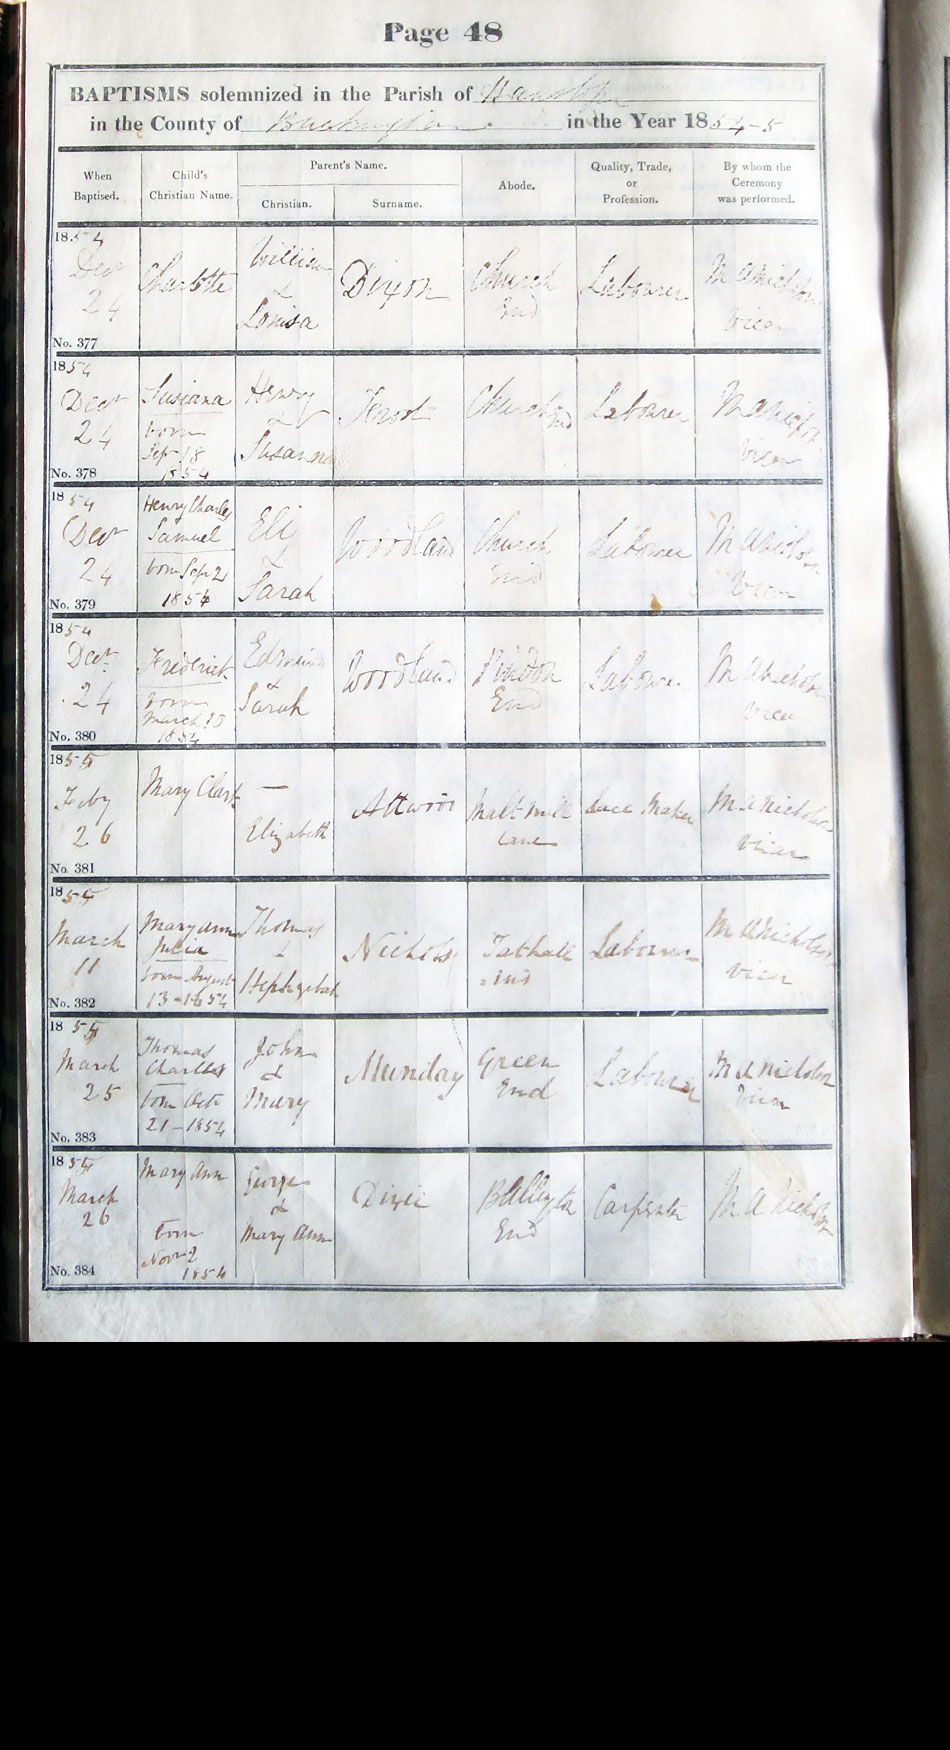 Page 48
BAPTISMS solemnized in the Parish of Hanslope
in the County of Buckingham in the Year 1854-5
When Baptised.
Child's Christian Name.
Parent's Name.
Christian.
Surname.
Abode.
Quality, Trade, or Profession.
By whom the Ceremony was performed.
1854
Decr
24
No. 377
Charlotte
William
&
Louisa
Dixon
Church
End
Labourer
M A Nicholson
Vicar
1854
Decr
24
No. 378
Susiana
born
Sepr 18
1854
Henry
&
Susanna
Church End
Labourer
M A Nicholson
Vicar
1854
Decr
24
No. 379
Henry Charles
Samuel
born Sep 21
1854
Eli
&
Sarah
Woodland
Church
End
Labourer
M A Nicholson
Vicar
1854
Decr
24
No. 380
Frederick
born
March 15
1854
Edmund
&
Sarah
Woodland
Pindon
End
Labourer
M A Nicholson
Vicar
1855
Feby
26
No. 381
Mary Clark
—
Elizabeth
Attwood
Malt Mill
Lane
Lace Maker
M A Nicholson
Vicar
1855
March
11
No. 382
Mary Ann
Julia
born August
13-1854
Thomas
&
Hephzebah
Nichols
Tathall
End
Labourer
M A Nicholson
Vicar
1855
March
25
No. 383
Thomas
Charles
born Octr
21-1854
John
&
Mary
Munday
Green
End
Labourer
M A Nicholson
Vicar
1855
March
26
No. 384
Mary Ann
born
Novr 2
1854
George
&
Mary Ann
Dixie
Bullington
End
Carpenter
M A Nicholson